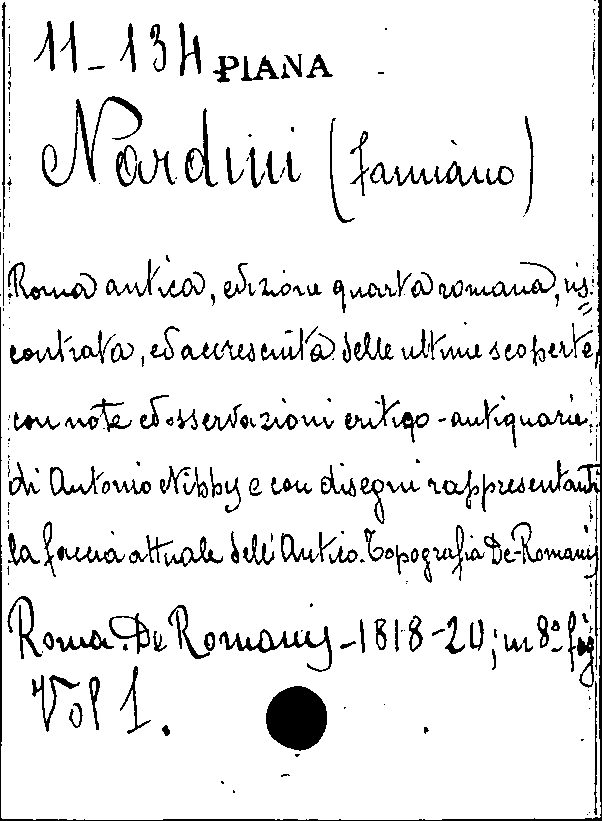 11-134 PIANA
Nardini (Famiano)
Roma antica, edizione quarta romana, ris=
contrata, ed accresciuta delle ultime scoperte,
con note ed osservazioni critiqo-antiquarie
di Antonio Nibby e con disegni rappresentanti
la faccia attuale dell'Antico. Topografia De-Romanis
Roma. De Romanis-1818-20; in 8º fig
Vol 1.